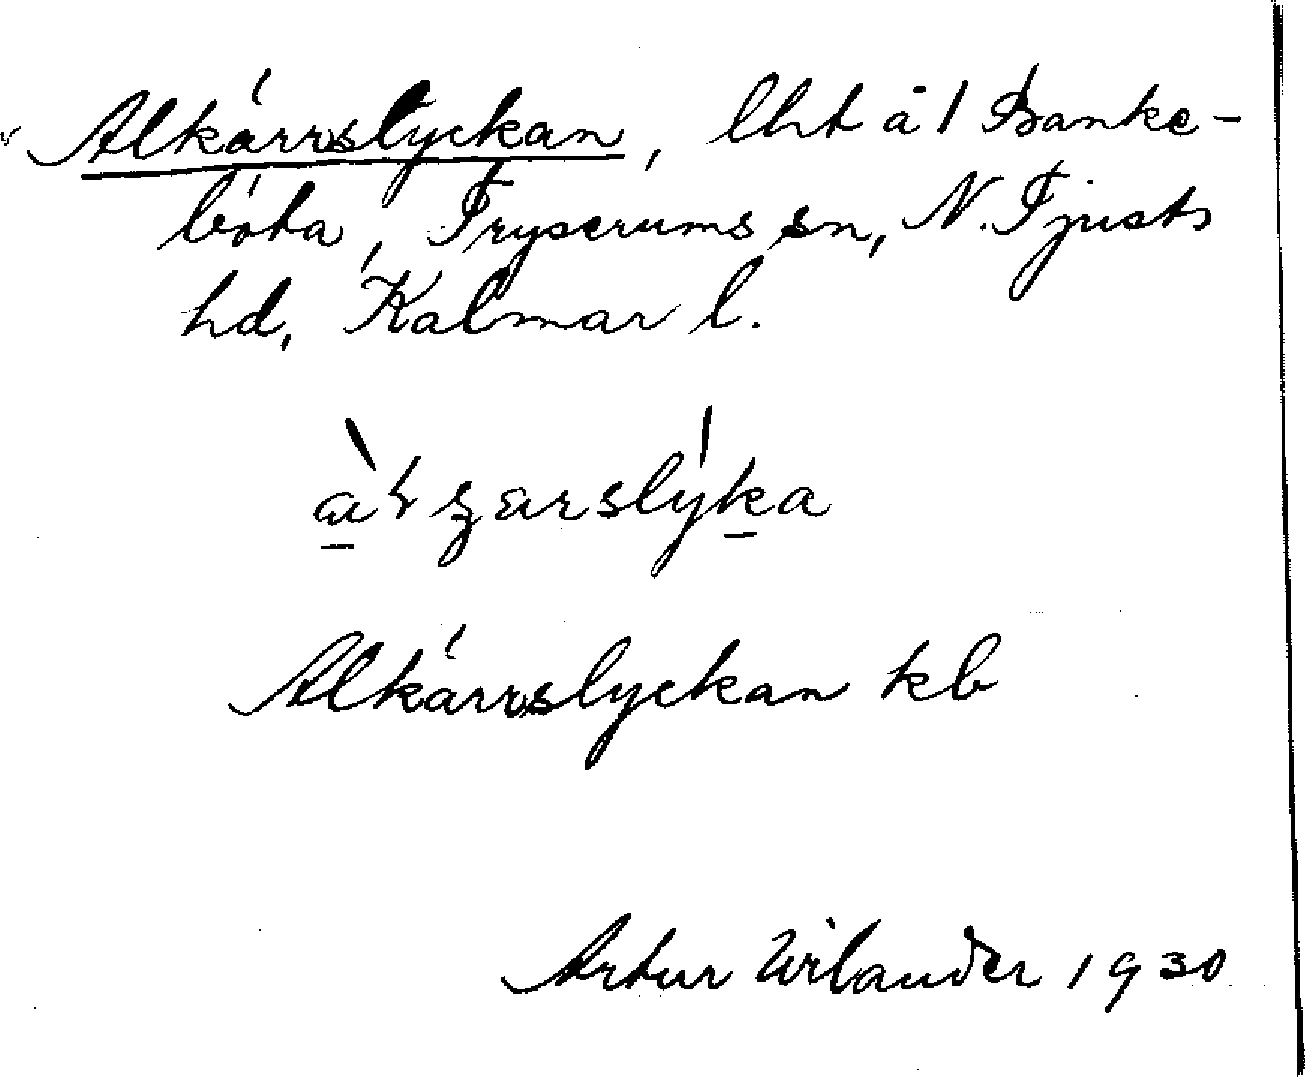 Alkärrslyckan, lht å 1 Banke-
böta, Tryserums sn, N. Tjusts
hd, Kalmar l.
Alkärrslyckan kb
Artur Wilander 1930